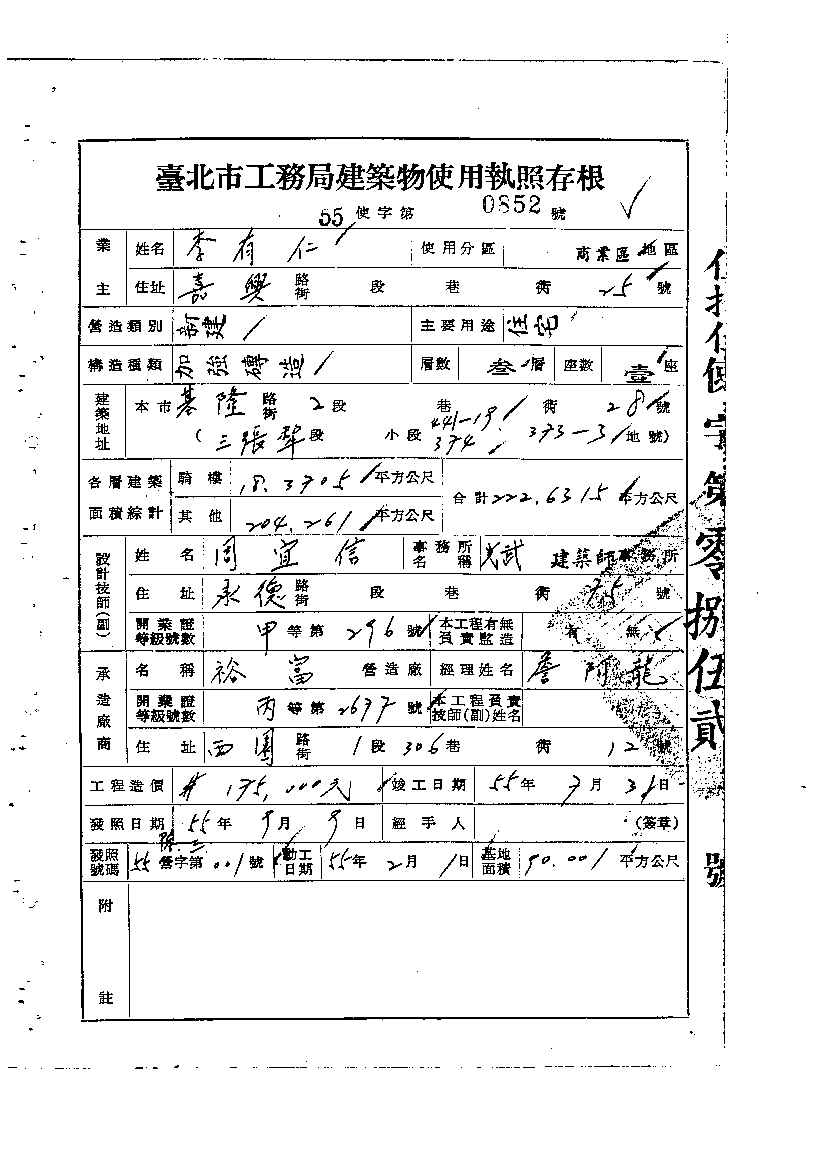 臺北市工務局建築物使用執照存根
55 使字第 0852 號
業主 姓名 李有仁 使用分區 商業區 地區
住址 嘉興 路街 段 巷 衖 25 號
營造類別 新建 主要用途 住宅
構造種類 加強磚造 層數 叁 層 座數 壹 座
建築地址 本市 基隆 路街 2 段 巷 衖 28 號
( 三張犁 段 小段 441-19 374 373-3 地號)
各層建築面積綜計 騎樓 18.3705 平方公尺 合計 222.6315 平方公尺
其他 204.261 平方公尺
設計技師(副) 姓名 周宜信 事務所名稱 武 建築師事務所
住址 永德 路街 段 巷 衖 75 號
開業證等級號數 甲 等第 296 號 本工程有無負責監造 有 無
承造廠商 名稱 裕富 營造廠 經理姓名 詹阿龍
開業證等級號數 丙 等第 2677 號 本工程負責技師(副)姓名
住址 西園 路街 1 段 306 巷 衖 12 號
工程造價 175,000元 竣工日期 55年 7月 31日
發照日期 55年 9月 9日 經手人 (簽章)
發照號碼 55 營字第 001 號 動工日期 55年 2月 1日 基地面積 90.001 平方公尺
附註
使字第零捌伍貳號